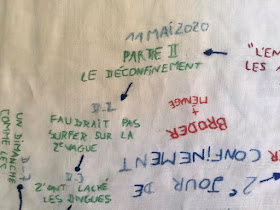 11 MAI 2020
PARTIE II
LE DÉCONFINEMENT
"L'EN
LES
FAUDRAIT PAS
SURFER SUR LA
2e VAGUE
Z'ONT LACHÉ
LES DINGUES
2e JOUR DE
CONFINEMENT
BRODER
+ MÉNAGE
UN DIMANCHE
COMME LES